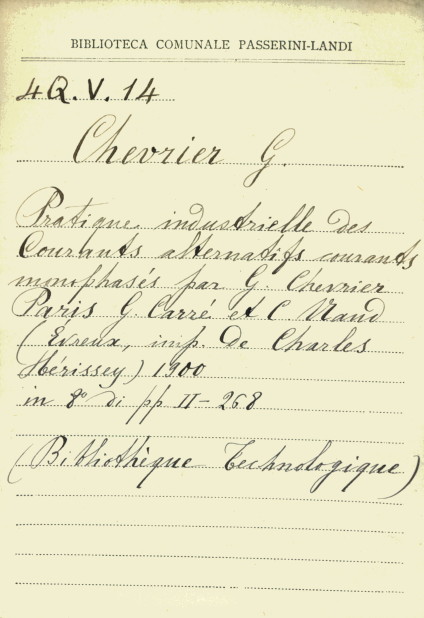 BIBLIOTECA COMUNALE PASSERINI-LANDI
4Q.V.14
Chevrier G.
Pratique industrielle des
Courants alternatifs courants
monophasés par G. Chevrier
Paris G. Carré et C. Naud
(Evreux, imp. de Charles
Hérissey) 1900
in 8° di pp II-268
(Bibliothèque Technologique)